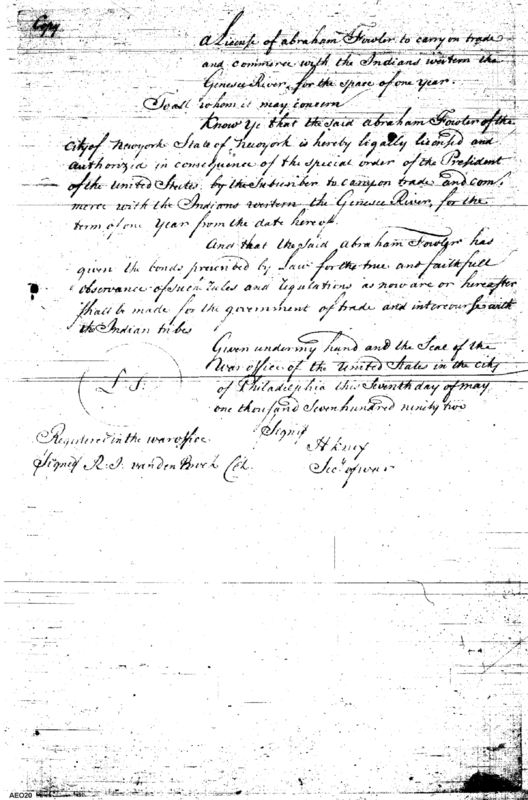 Copy
A License of abraham Fowler to carry on trade
and commerce with the Indians western the
Genesee River, for the space of one year.
To all whom it may concern
Know Ye that the said Abraham Fowler of the
City of Newyork State of Newyork is hereby legally licensed and
authorized in consequence of the special order of the President
of the United States, by the subscriber to carry on trade and com,
merce with the Indians western the Genesee River, for the
term of one Year from the date hereof.
And that the said Abraham Fowler has
given the bonds prescribed by Law for the true and faithfull
observance of such rules and regulations as now are or hereafter
shall be made for the government of trade and intercourse with
the Indian tribes
Given under my hand and the Seal of the
War office of the United States in the City
of Philadelphia this Seventh day of may
one thousand Seven hundred ninety two
L S.
Signed
Registered in the war office
H Knox
Signed R. J. vanden Broek
Secy of war
AEO20